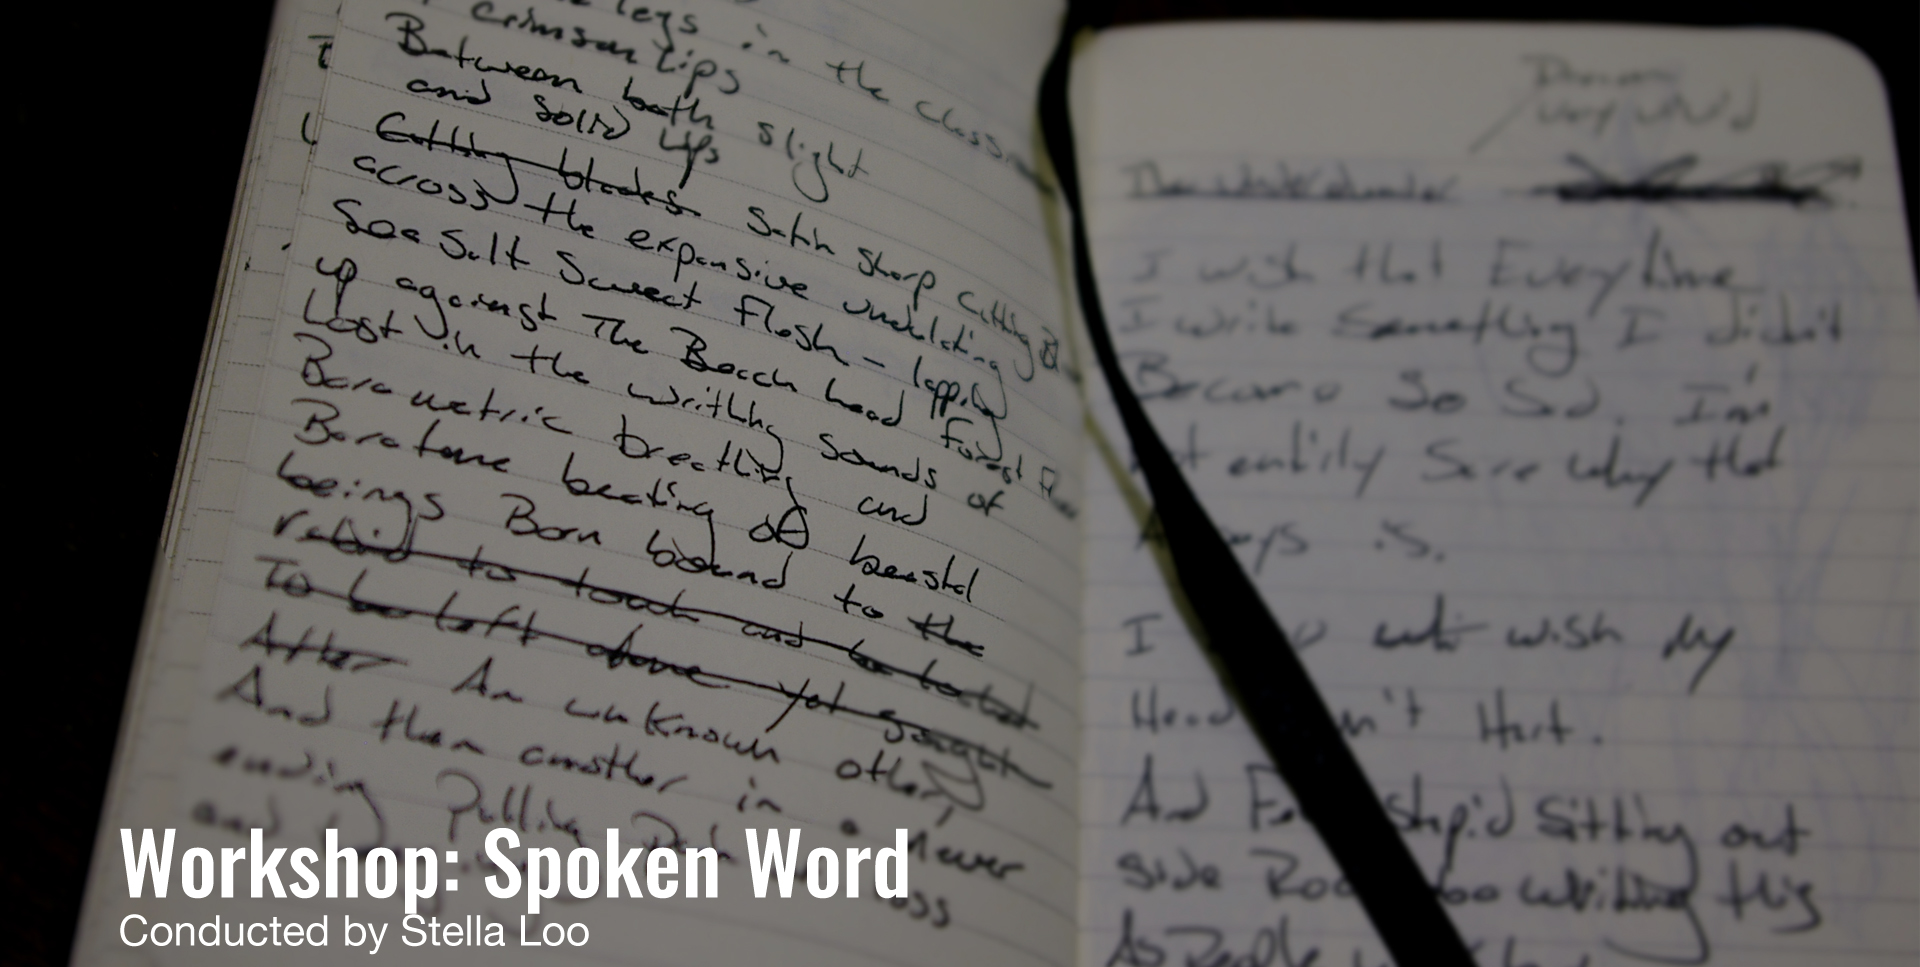 legs in the
crimson lips
Between both slight
and solid lips
Cutting blades Satin Sharp Cutting
across the expansive undulating
Sea Salt Sweet Flesh – lapping
up against The Beach head Forest
Lost in the writhing Sounds of
Barometric breathing and
Baratone beating of
beings Born bound to the
to touch and to be
To be left alone yet sought
After An unknown other,
And then another in a Never
ending Pulling
and
I wish that Everytime
I write Something I didn't
Become So Sad. I'm
entirly Sure why that
is.
I wish My
Hurt.
And stupid Sitting out
side writing this
As People
Workshop: Spoken Word
Conducted by Stella Loo